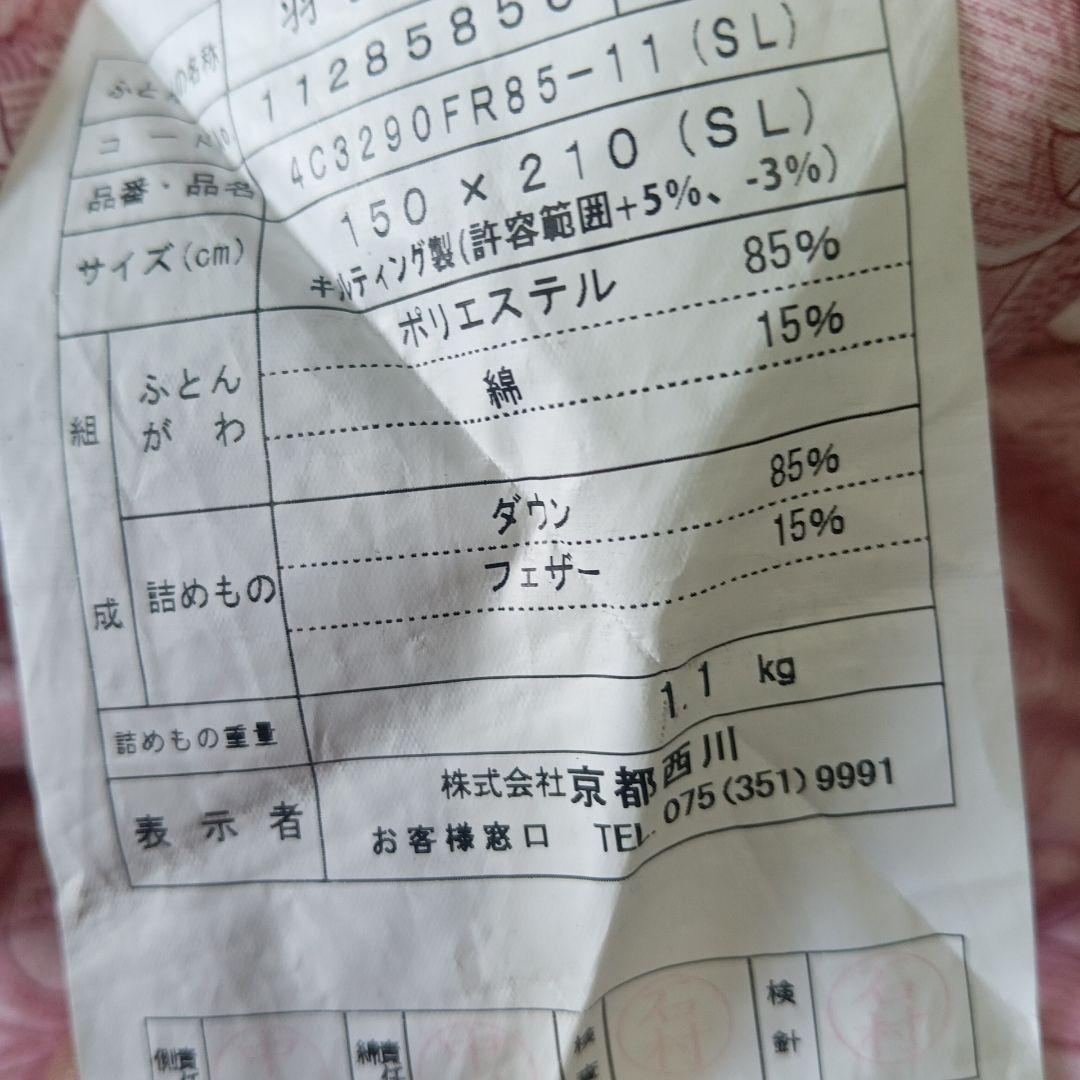 ふと の名称 羽
コー 1128585
品番・品名 4C3290FR85-11(SL)
サイズ(cm) 150 × 210 (SL)
キルティング製(許容範囲+5%、-3%)
組成
ふとんがわ
ポリエステル 85%
綿 15%
詰めもの
ダウン 85%
フェザー 15%
詰めもの重量 1.1 kg
表示者 株式会社京都西川
お客様窓口 TEL.075(351)9991
検針 石村
石村